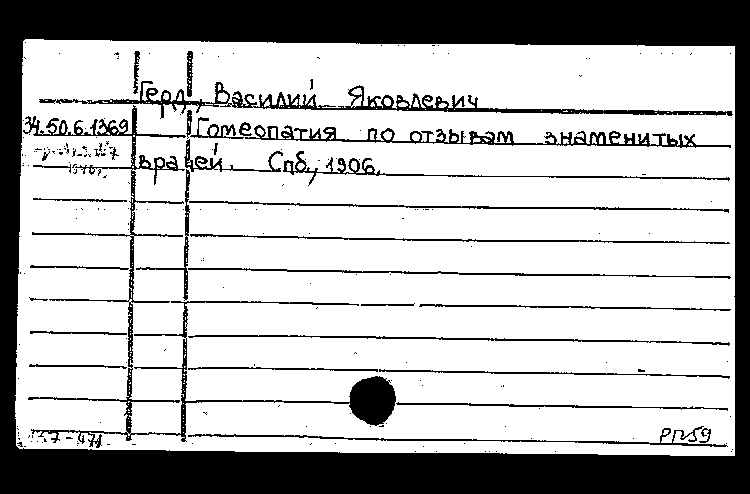 Герд, Василий Яковлевич
34.50.6.1369 Гомеопатия по отзывам знаменитых
врачей. Спб., 1906.